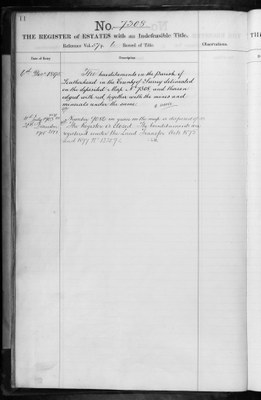 11
No. 7308
THE REGISTER of ESTATES with an Indefeasible Title.
Reference Vol. 274 6 Record of Title.
Observations.
Date of Entry.
Description.
The hereditaments in the Parish of
Leatherhead in the County of Surrey delineated
on the deposited Map No. 7308 and thereon
edged with red, together with the mines and
minerals under the same.
Number 7308 on green on the map is disposed of
The Register is closed. The hereditaments are
registered under the Land Transfer Acts 1875
and 1897